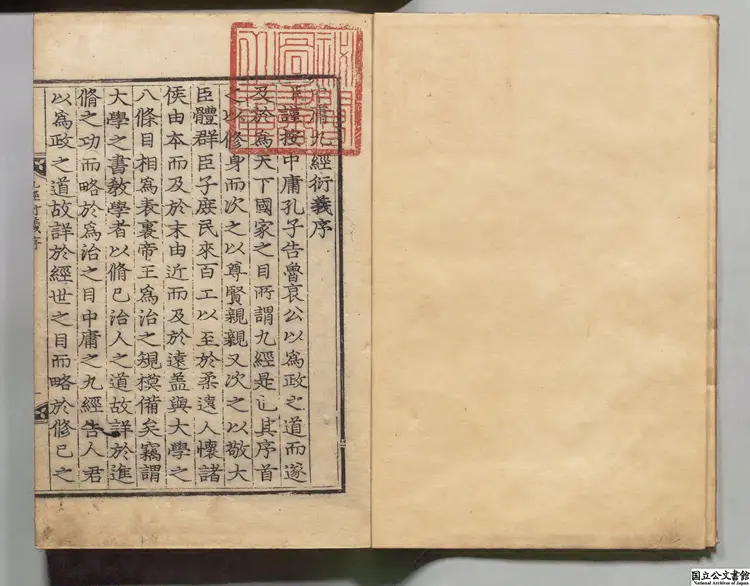 中庸九經衍義序
臣謹按中庸孔子告魯哀公以爲政之道而遂
及於爲天下國家之目所謂九經是已其序首
之以修身而次之以尊賢親親又次之以敬大
臣體群臣子庶民來百工以至於柔遠人懷諸
侯由本而及於末由近而及於遠盖與大學之
八條目相爲表裏帝王爲治之規模備矣竊謂
大學之書教學者以脩己治人之道故詳於進
脩之功而略於爲治之目中庸之九經告人君
以爲政之道故詳於經世之目而略於修已之
九經衍義序
国立公文書館
National Archives of Japan